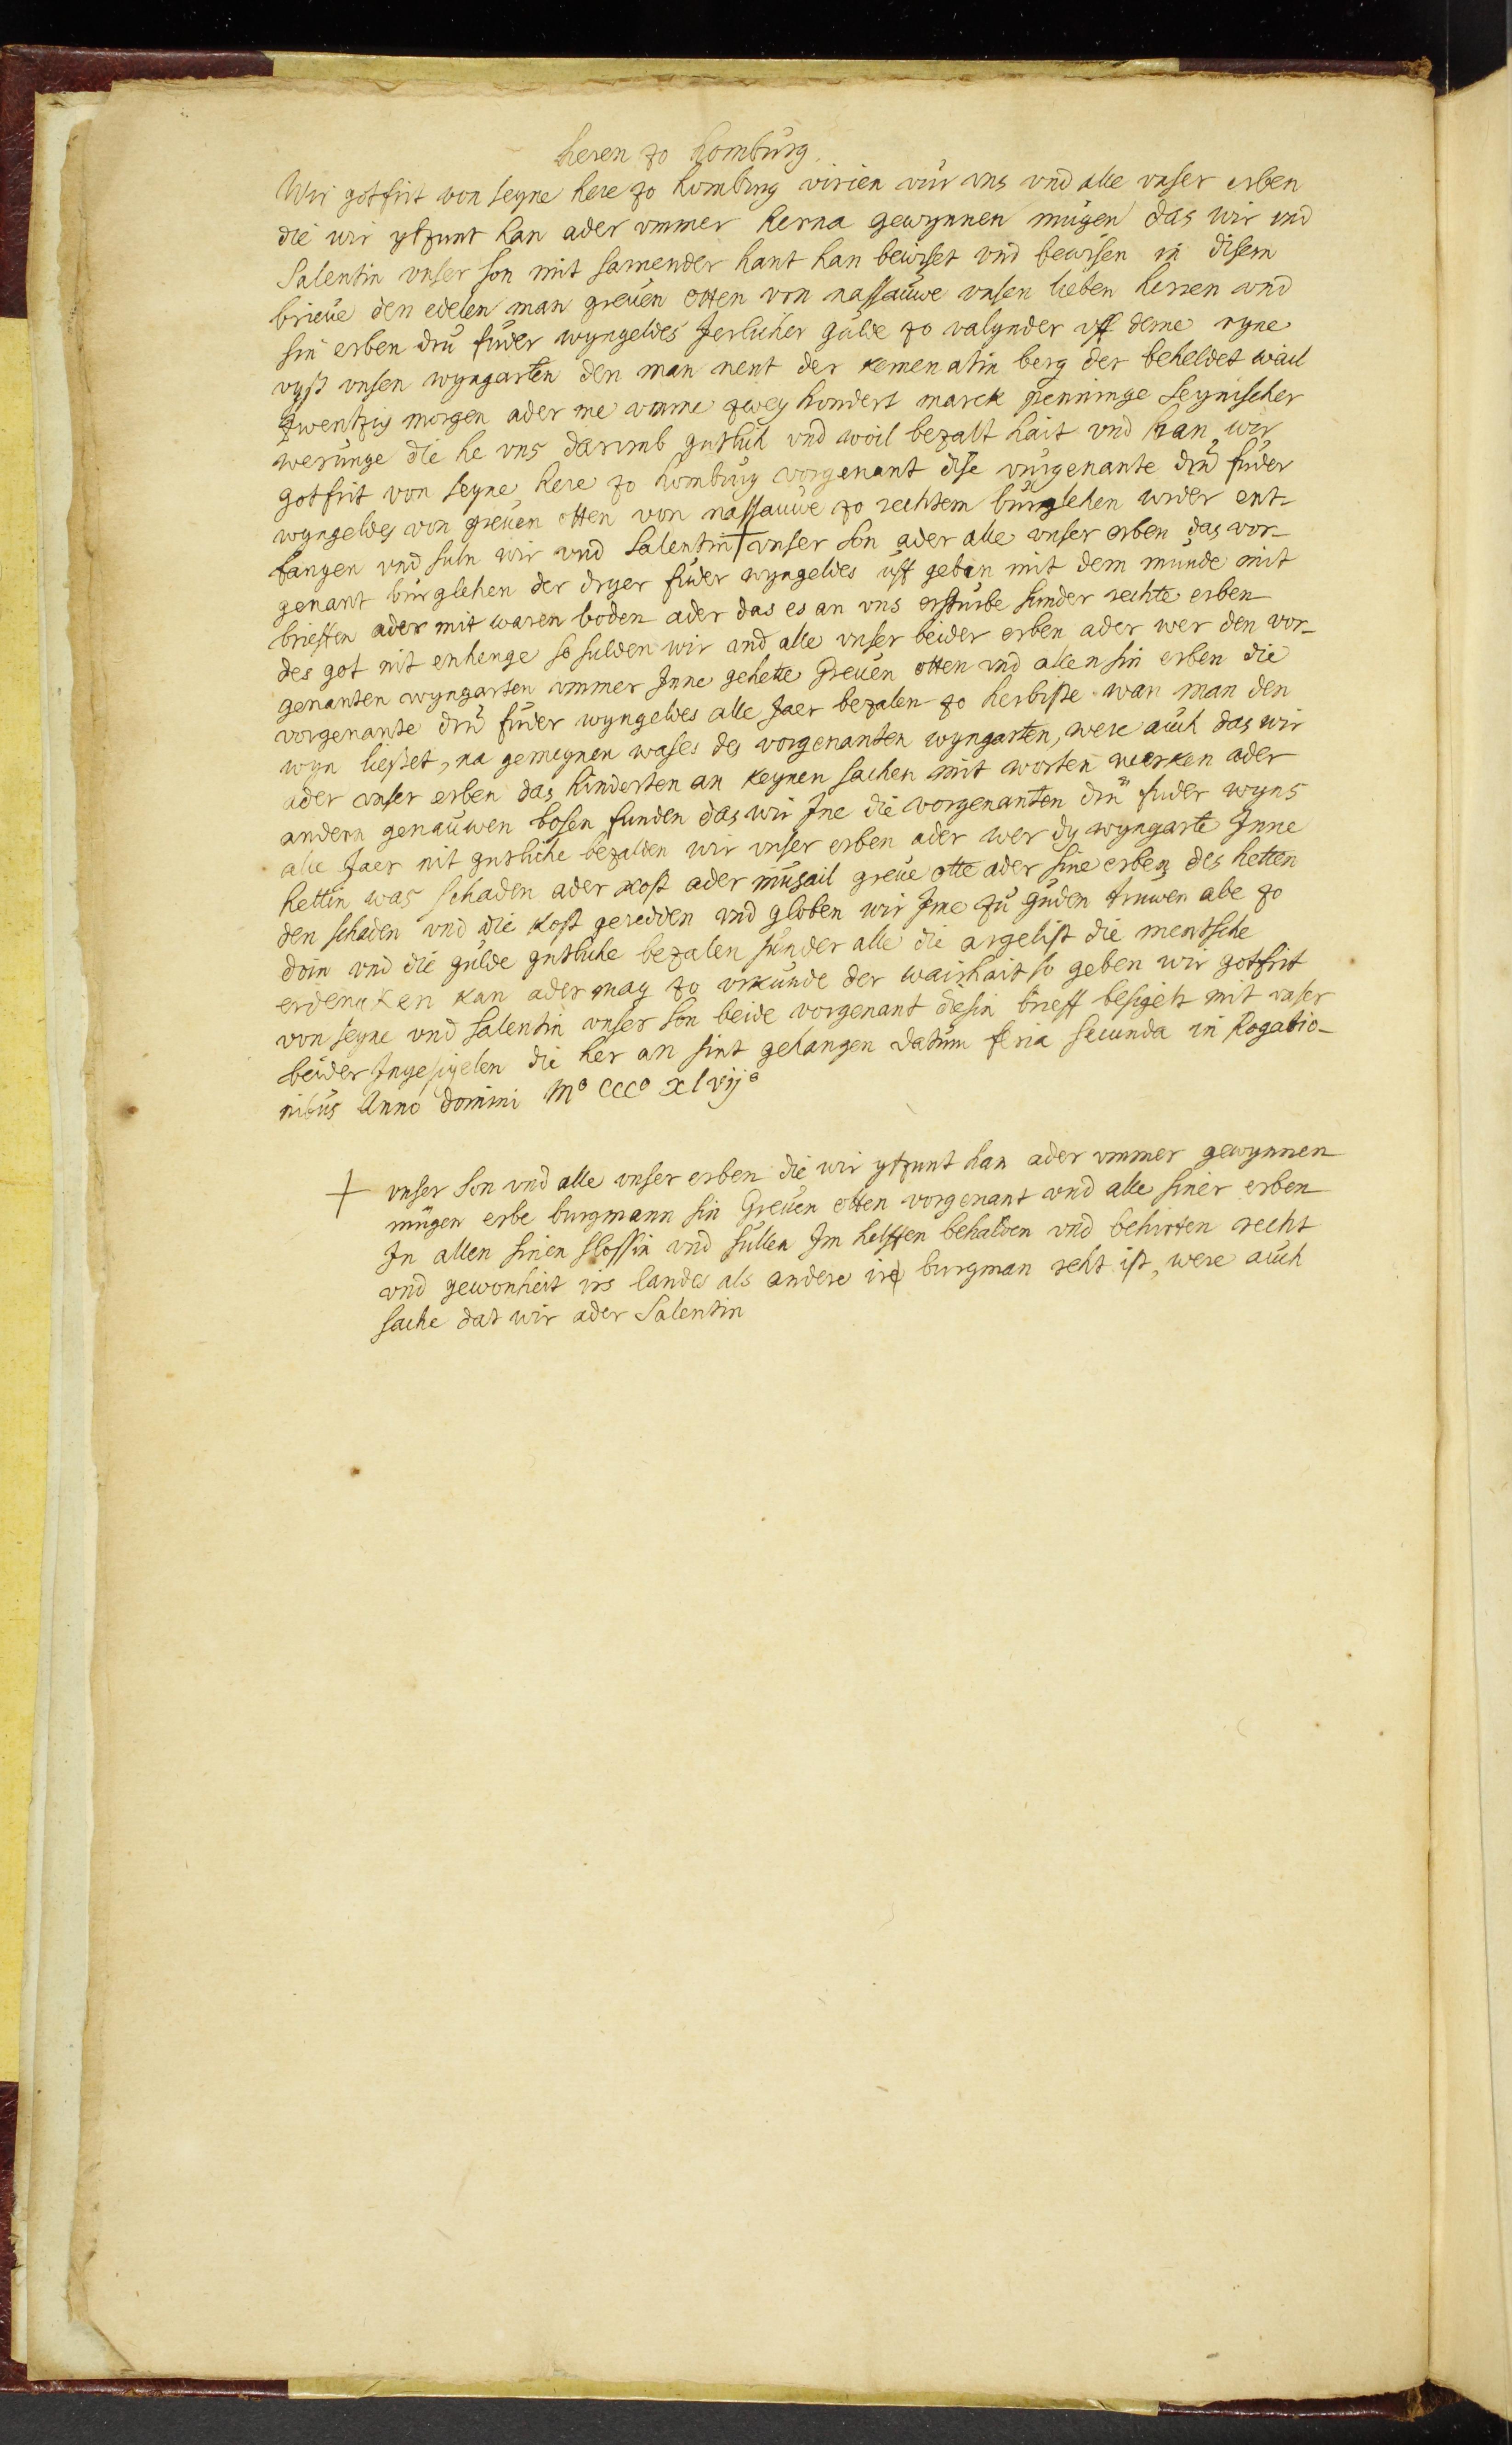 heren zo homburg
Wir gotfrit von seyne here zo homburg virien vur vns vnd alle vnser erben
die wir ytzunt han ader vmmer herna gewynnen mügen das wir vnd
Salentin vnser son mit samender hant han bewiset vnd bewisen in disem
brieue den edelen man greuen otten von nassauwe vnsen lieben herren vnd
sin erben drü füder wyngeldes Jerlicher gulde zo valynder vff deme ryne
vyß vnsen wyngarten den man nent der kemenatin berg der beheldet wail
zwentzig morgen ader me vmme zwey hondert marck penninge Seynischer
werunge die he vns darvmb gutlich vnd woil bezalt hait vnd han wir
gotfrit von seyne here zo homburg vorgenant dise vurgenante drü füder
wyngeldes von greuen otten von nassauwe zo rechtem burglehen wider ent-
fangen vnd suln wir vnd Salentin + vnser son ader alle vnser erben das vor-
genant burglehen der dryer füder wyngeldes uff geben mit dem munde mit
brieffen ader mit waren boden ader das es an vns ersturbe sunder rechte erben
des got nit enhenge so sulden wir vnd alle vnser beider erben ader wer den vor-
genanten wyngarten vmmer Jnne gehette Greuen otten vnd allen sin erben die
vorgenante drü füder wyngeldes alle Jaer bezalen zo herbiste wan man den
wyn liesset, na gemeynen wases des vorgenanten wyngarten, were auch das wir
ader vnser erben das hinderten an keynen sachen mit worten werken ader
andern genauwen bosen funden das wir Jne die vorgenanten drü fuder wyns
alle Jaer nit gutliche bezalden wir vnser erben ader wer dy wyngarte Jnne
hettin was schaden ader kost ader müsail greue otte ader sine erben des hetten
den schaden vnd die kost geredden vnd globen wir Jme zu guden truwen abe zo
doin vnd die gulde gutliche bezalen sunder alle die argelist die mentsche
erdencken kan ader mag zo vrkunde der wairhait so geben wir gotfrit
von seyne vnd Salentin vnser son beide vorgenant diesin brieff besigelt mit vnser
beider Jngesigelen die her an sint gehangen datum feria secunda in Rogatio-
nibus Anno domini Mº CCCº xlvijº
+ vnser son vnd alle vnser erben die wir ytzunt han ader vmmer gewynnen
mügen erbe burgmann sin Greuen otten vorgenant vnd alle siner erben
Jn allen sinen slossin vnd sullen Jm helffen behalden vnd behirten recht
vnd gewonheit irs landes als andere ire burgman reht ist, were auch
sache dat wir ader Salentin